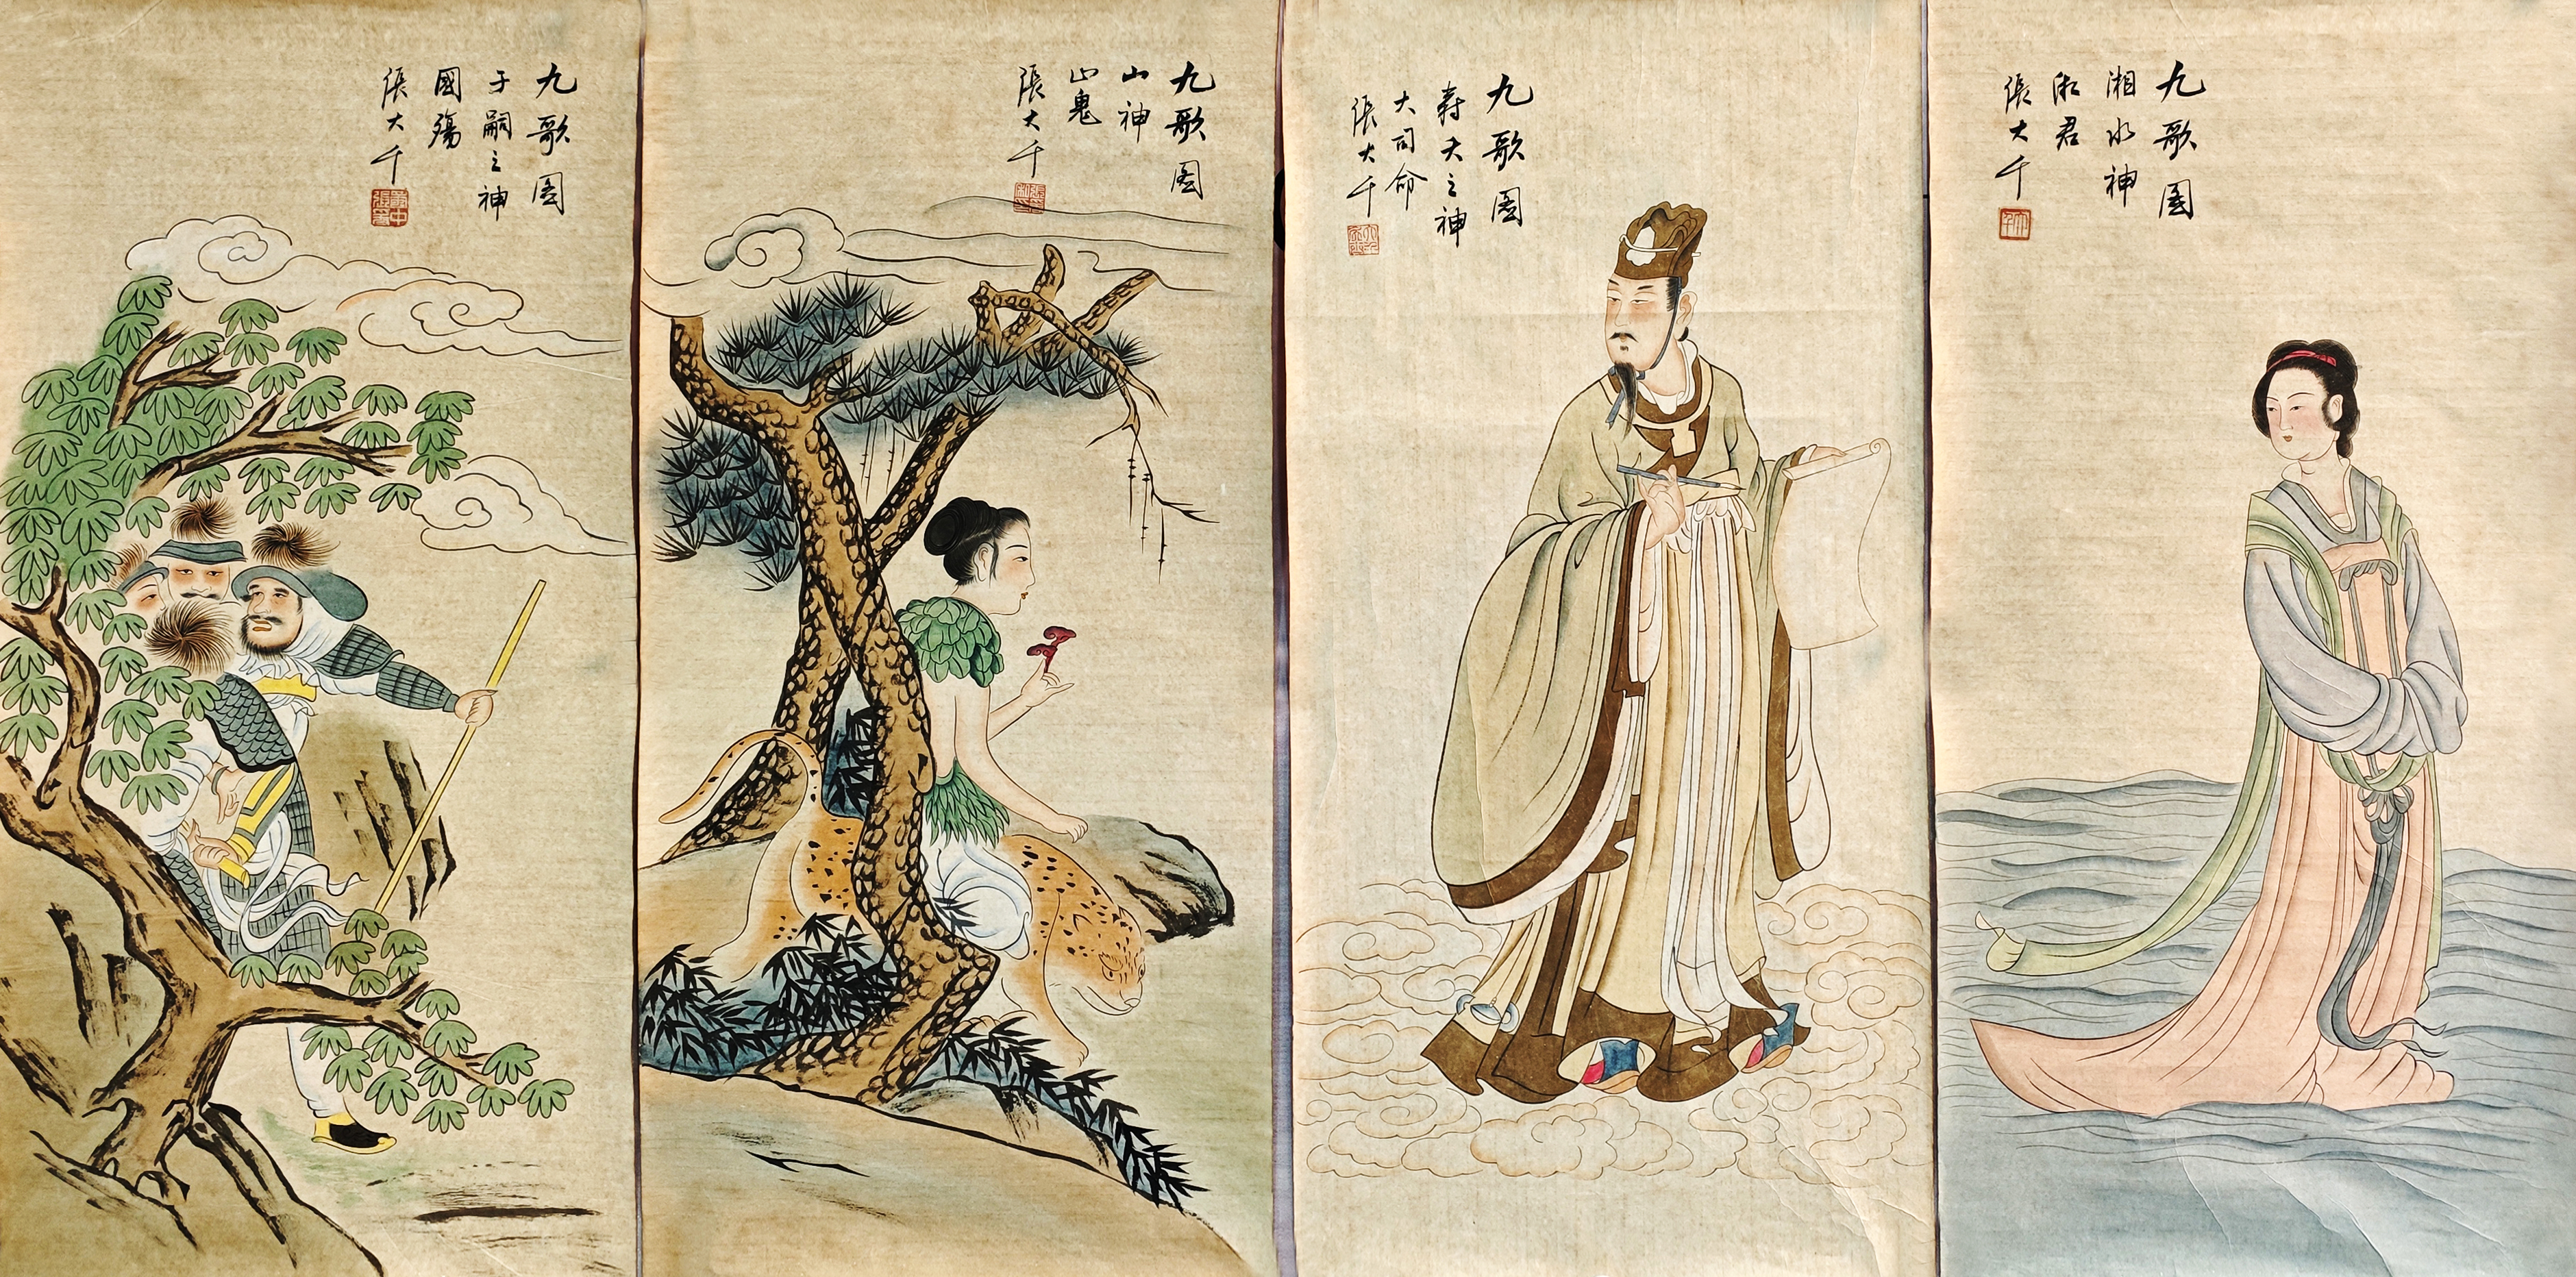 九歌图
子嗣之神
國殤
張大千
九歌图
山神
山鬼
張大千
九歌图
壽夭之神
大司命
張大千
九歌图
湘水神
湘君
張大千
大千